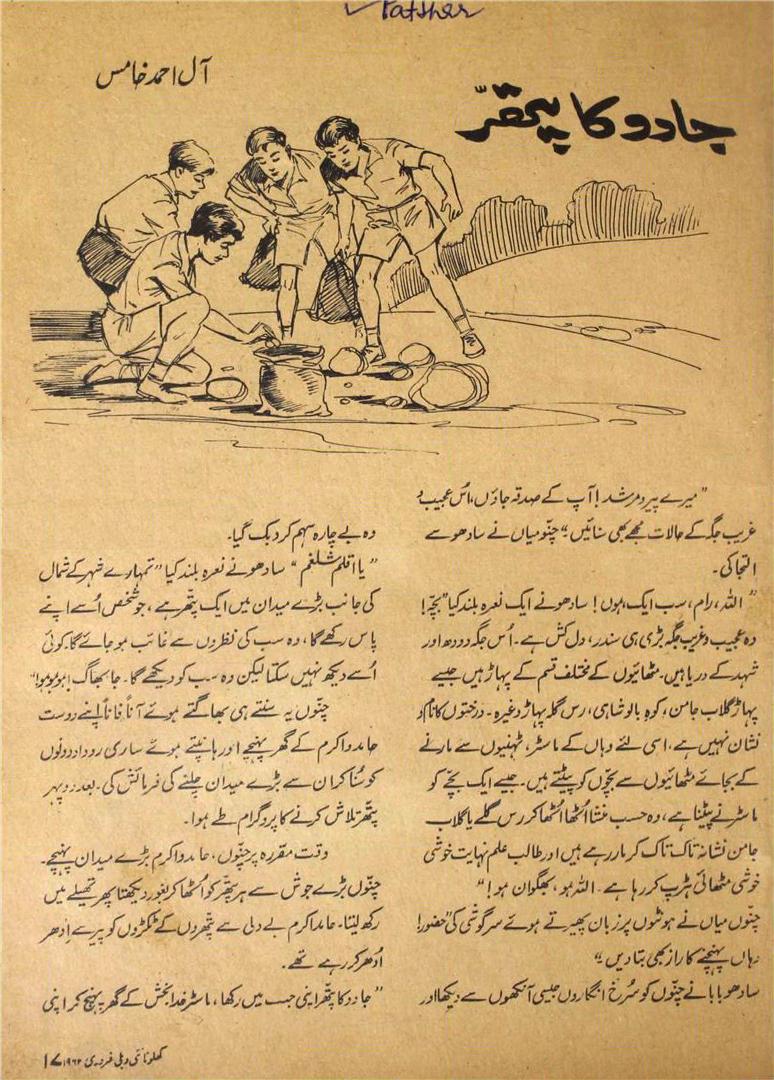 Patther
آل احمد خامس
جادو کا پتھر
"میرے پیر و مرشد! آپ کے صدقہ جاؤں، اُس عجیب و
غریب جگہ کے حالات مجھے بھی سنائیں" چنّو میاں نے سادھو سے
التجا کی۔
"اللہ، رام، سب ایک، ہوں! سادھو نے ایک نعرہ بلند کیا "بچّہ!
وہ عجیب و غریب جگہ بڑی ہی سندر، دل کش ہے۔ اُس جگہ دودھ اور
شہد کے دریا ہیں۔ مٹھائیوں کے مختلف قسم کے پہاڑ ہیں جیسے
پہاڑ گلاب جامن، کوہِ بالو شاہی، رس گلہ پہاڑ وغیرہ۔ درختوں کا نام و
نشان نہیں ہے، اسی لئے وہاں کے ماسٹر، ٹہنیوں سے مارنے
کے بجائے مٹھائیوں سے بچّوں کو پیٹتے ہیں۔ جیسے ایک بچّے کو
ماسٹر نے پیٹنا ہے، وہ حسب منشا اُٹھا اُٹھا کر رس گلے یا گلاب
جامن نشانہ تاک تاک کر مار رہے ہیں اور طالب علم نہایت خوشی
خوشی مٹھائی ہڑپ کر رہا ہے۔ اللہ ہو، بھگوان ہو!"
چنّوں میاں نے ہونٹوں پر زبان پھیرتے ہوئے سرگوشی کی "حضور!
وہاں پہنچنے کا راز بھی بتا دیں۔"
سادھو بابا نے چنّوں کو سُرخ انگاروں جیسی آنکھوں سے دیکھا اور
وہ بے چارہ سہم کر دبک گیا۔
"یا اقلم شلغم" سادھو نے نعرہ بلند کیا "تمہارے شہر کے شمال
کی جانب بڑے میدان میں ایک پتّھر ہے، جو شخص اُسے اپنے
پاس رکھے گا، وہ سب کی نظروں سے غائب ہو جائے گا۔ کوئی
اُسے دیکھ نہیں سکتا لیکن وہ سب کو دیکھے گا۔ جا بھاگ! ہو ہو ہو!"
چنّوں یہ سنتے ہی بھاگتے ہوئے آناً فاناً اپنے دوست
حامد و اکرم کے گھر پہنچے اور ہانپتے ہوئے ساری روداد دونوں
کو سُنا کر ان سے بڑے میدان چلنے کی فرمائش کی۔ بعد دوپہر
پتّھر تلاش کرنے کا پروگرام طے ہوا۔
وقت مقررہ پر چنّوں، حامد و اکرم بڑے میدان پہنچے۔
چنّوں بڑے جوش سے ہر پتّھر کو اُٹھا کر بغور دیکھتا پھر تھیلے میں
رکھ لیتا۔ حامد اکرم بے دلی سے پتّھروں کے ٹکڑوں کو پیر سے اِدھر
اُدھر کر رہے تھے۔
"جادو کا پتّھر اپنی جیب میں رکھا، ماسٹر خدا بخش کے گھر پہنچ کر اپنی
کھلونا نئی دہلی فروری ۱۹۶۲ء ۱۷